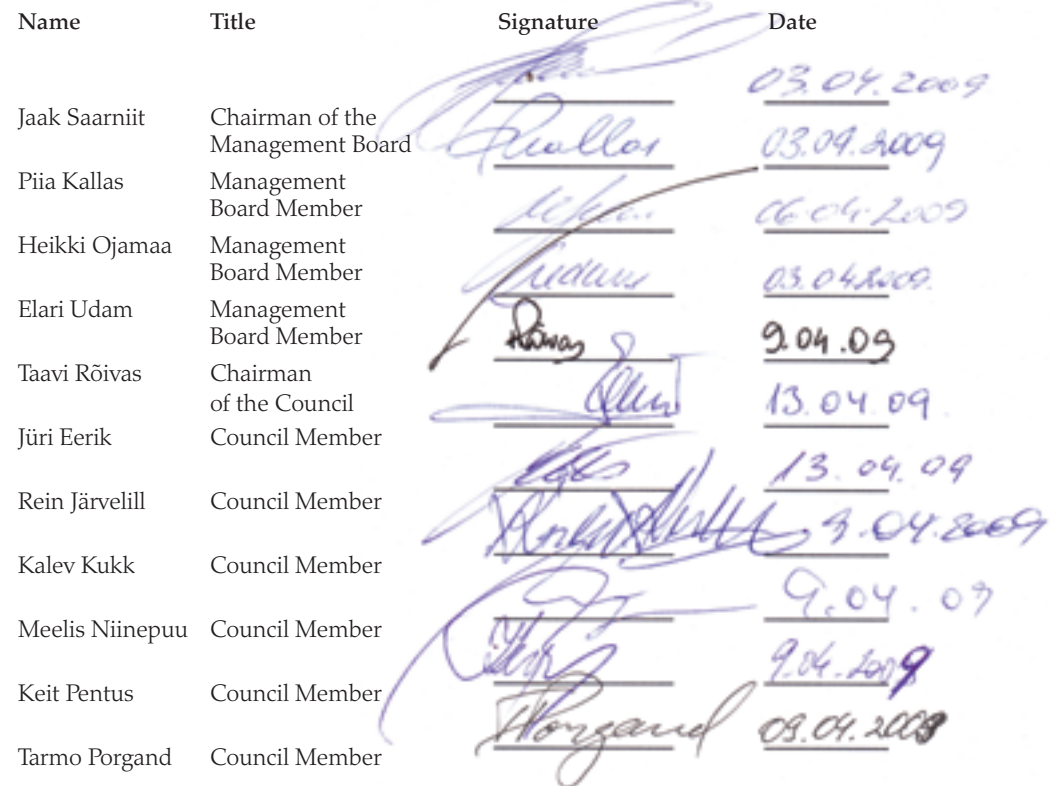 Name Title Signature Date
03.04.2009
Jaak Saarniit Chairman of the
Management Board
Kallas 03.04.2009
Piia Kallas Management
Board Member
06.04.2009
Heikki Ojamaa Management
Board Member
Udam 03.04.2009.
Elari Udam Management
Board Member
Rõivas 9.04.09
Taavi Rõivas Chairman
of the Council
13.04.09
Jüri Eerik Council Member
13.04.09
Rein Järvelill Council Member
9.04.2009
Kalev Kukk Council Member
9.04.09
Meelis Niinepuu Council Member
9.04.2009
Keit Pentus Council Member
TPorgand 09.04.2009
Tarmo Porgand Council Member